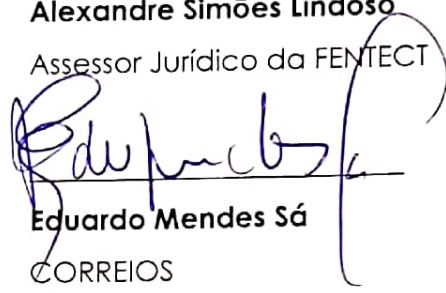 Alexandre Simões Lindoso
Assessor Jurídico da FENTECT
Eduardo Mendes Sá
CORREIOS